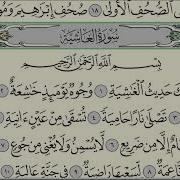 ٱلصُّحُفِ ٱلْأُولَىٰ ١٨ صُحُفِ إِبْرَٰهِيمَ وَمُو
سُورَةُ ٱلْغَاشِيَةِ
بِسْمِ ٱللَّهِ ٱلرَّحْمَٰنِ ٱلرَّحِيمِ
كَ حَدِيثُ ٱلْغَٰشِيَةِ ١ وُجُوهٌ يَوْمَئِذٍ خَٰشِعَةٌ ٢
٣ تَصْلَىٰ نَارًا حَامِيَةً ٤ تُسْقَىٰ مِنْ عَيْنٍ ءَانِيَةٍ
امٌ إِلَّا مِن ضَرِيعٍ ٦ لَّا يُسْمِنُ وَلَا يُغْنِى مِن جُوعٍ
اعِمَةٌ ٨ لِّسَعْيِهَا رَاضِيَةٌ ٩ فِى جَنَّةٍ عَالِيَةٍ ١٠